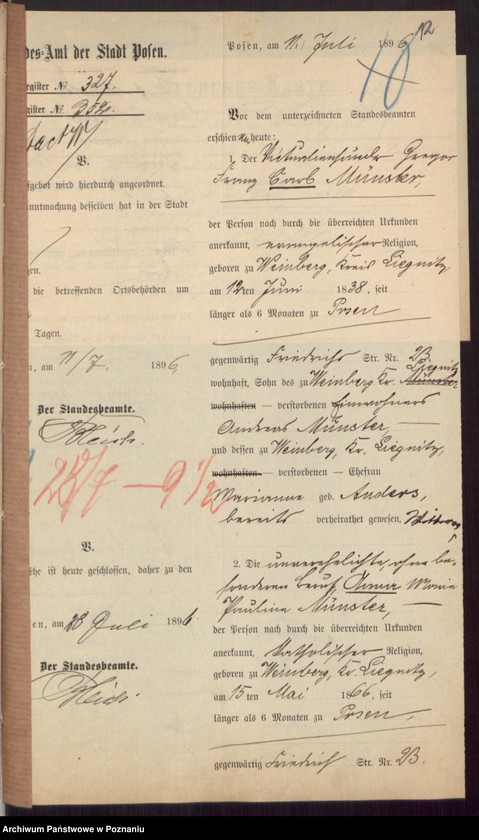 des-Amt der Stadt Posen.
egister № 327.
gister № 352.
B.
fgebot wird hierdurch angeordnet.
anntmachung desselben hat in der Stadt
gen.
die betreffenden Ortsbehörden um
Tagen.
n, am 11/7. 1896
Der Standesbeamte.
28/7 – 9 1/2
B.
Ehe ist heute geschlossen, daher zu den
en, am 28 Juli 1896.
Der Standesbeamte.
12
Posen, am 11. Juli 1896
10
Vor dem unterzeichneten Standesbeamten
erschienen heute:
1. Der Victualienhändler Gregor
Franz Carl Münster,
der Person nach durch die überreichten Urkunden
anerkannt, evangelischer Religion,
geboren zu Weinberg, Kreis Liegnitz
am 12ten Juni 1838, seit
länger als 6 Monaten zu Posen
gegenwärtig Friedrichs Str. Nr. 23
Liegnitz
wohnhaft, Sohn des zu Weinberg Kr. Münster
wohnhaften — verstorbenen Einwohners
Andreas Münster,
und dessen zu Weinberg, Kr. Liegnitz,
wohnhaften — verstorbenen — Ehefrau
Marianne geb. Anders,
bereits verheirathet gewesen, Wittwer,
2. Die unverehelichte, ohne be-
sonderen Beruf Anna Marie
Pauline Münster,
der Person nach durch die überreichten Urkunden
anerkannt, katholischer Religion,
geboren zu Weinberg, Kr. Liegnitz,
am 15ten Mai 1866, seit
länger als 6 Monaten zu Posen,
gegenwärtig Friedrich Str. Nr. 23.
Archiwum Państwowe w Poznaniu